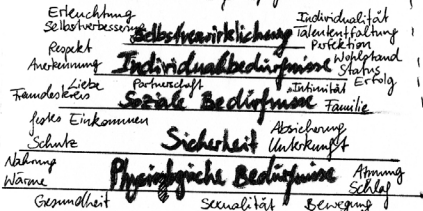 Erleuchtung
Selbstverbesserung
Selbstverwirklichung
Individualität
Talententfaltung
Perfektion
Respekt
Anerkennung
Individualbedürfnisse
Wohlstand
Status
Erfolg
Liebe
Freundeskreis
Partnerschaft
Soziale Bedürfnisse
Intimität
Familie
festes Einkommen
Schutz
Sicherheit
Absicherung
Unterkunft
Nahrung
Wärme
Physiologische Bedürfnisse
Atmung
Schlaf
Gesundheit
Sexualität
Bewegung